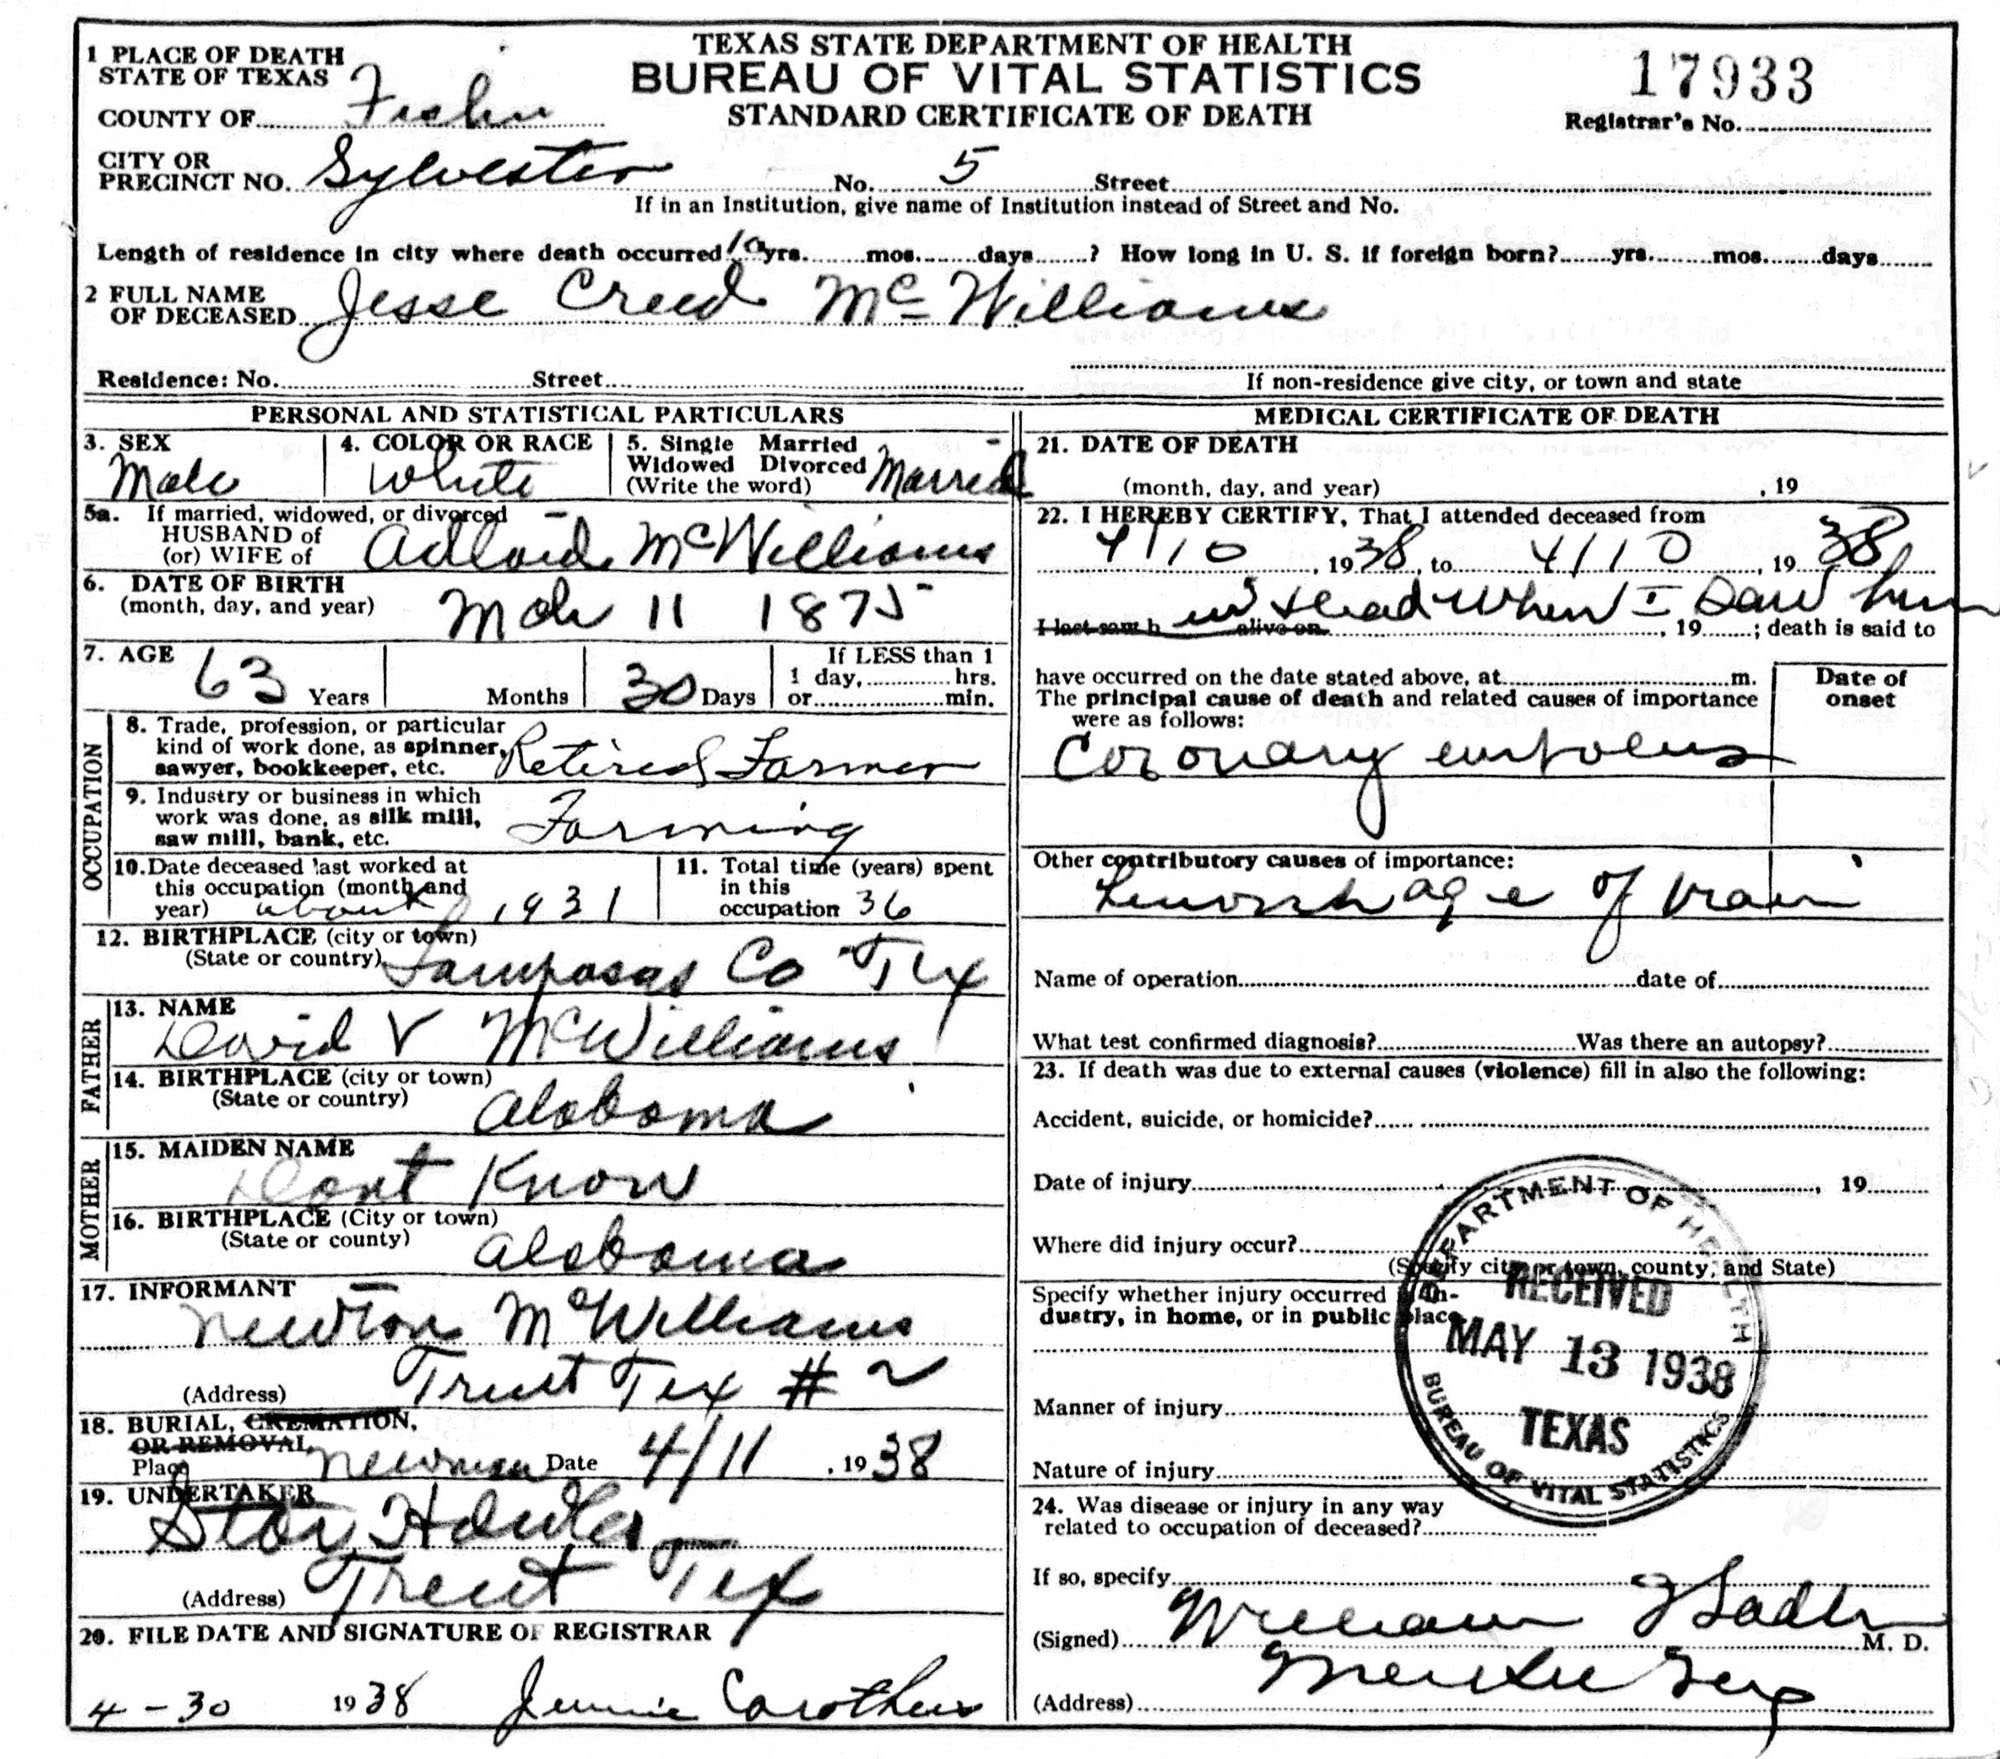 TEXAS STATE DEPARTMENT OF HEALTH
BUREAU OF VITAL STATISTICS
STANDARD CERTIFICATE OF DEATH
17933
Registrar's No.
1 PLACE OF DEATH
STATE OF TEXAS
COUNTY OF Fisher
CITY OR
PRECINCT NO. Sylvester No. 5 Street
If in an Institution, give name of Institution instead of Street and No.
Length of residence in city where death occurred 10 yrs. mos. days ? How long in U. S. if foreign born? yrs. mos. days
2 FULL NAME
OF DECEASED Jesse Creed McWilliams
Residence: No. Street
If non-residence give city, or town and state
PERSONAL AND STATISTICAL PARTICULARS
3. SEX
Male
4. COLOR OR RACE
White
5. Single Married
Widowed Divorced
(Write the word) Married
5a. If married, widowed, or divorced
HUSBAND of
(or) WIFE of McWilliams
6. DATE OF BIRTH
(month, day, and year) Mch 11 1875
7. AGE
63 Years Months 30 Days
If LESS than 1
1 day, hrs.
or min.
OCCUPATION
8. Trade, profession, or particular
kind of work done, as spinner,
sawyer, bookkeeper, etc. Retired Farmer
9. Industry or business in which
work was done, as silk mill,
saw mill, bank, etc. Farming
10. Date deceased last worked at
this occupation (month and
year) about 1931
11. Total time (years) spent
in this
occupation 36
12. BIRTHPLACE (city or town)
(State or country) Lampasas Co Tex
FATHER
13. NAME
David V McWilliams
14. BIRTHPLACE (city or town)
(State or country) Alabama
MOTHER
15. MAIDEN NAME
Dont Know
16. BIRTHPLACE (City or town)
(State or county) Alabama
17. INFORMANT
Newton McWilliams
(Address) Trent Tex # 2
18. BURIAL, CREMATION,
OR REMOVAL
Place Newman Date 4/11, 1938
19. UNDERTAKER
(Address) Trent Tex
20. FILE DATE AND SIGNATURE OF REGISTRAR
4-30 1938 Jennie Carothers
MEDICAL CERTIFICATE OF DEATH
21. DATE OF DEATH
(month, day, and year) , 19
22. I HEREBY CERTIFY, That I attended deceased from
4/10, 1938, to 4/10, 1938
I last saw h alive on dead when I saw him, 19 ; death is said to
have occurred on the date stated above, at m.
The principal cause of death and related causes of importance
were as follows:
Date of
onset
Coronary embolus
Other contributory causes of importance:
Hemorrhage of brain
Name of operation date of
What test confirmed diagnosis? Was there an autopsy?
23. If death was due to external causes (violence) fill in also the following:
Accident, suicide, or homicide?
Date of injury , 19
Where did injury occur?
(Specify city or town, county, and State)
Specify whether injury occurred in in-
dustry, in home, or in public place
Manner of injury
Nature of injury
24. Was disease or injury in any way
related to occupation of deceased?
If so, specify
(Signed) William M. D.
(Address) Merkel Tex
DEPARTMENT OF HEALTH
RECEIVED
MAY 13 1938
TEXAS
BUREAU OF VITAL STATISTICS